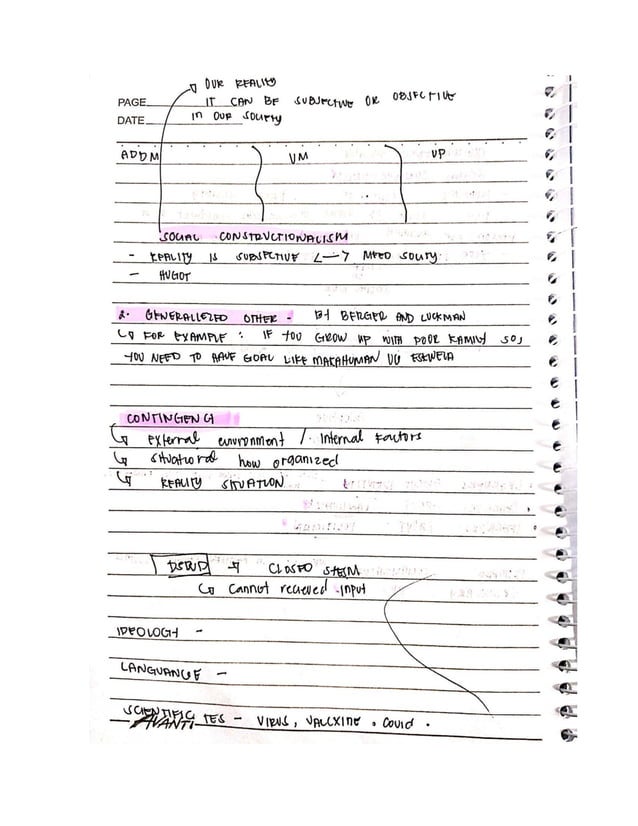 ↳ OUR REALITY
PAGE IT CAN BE SUBJECTIVE OR OBJECTIVE
DATE IN OUR SOCIETY
ADDM VM VP
SOCIAL CONSTRUCTIONALISM
- REALITY IS SUBJECTIVE <--> NEED SOCIETY
- HUGOT
2. GENERALIZED OTHER - BY BERGER AND LUCKMAN
↳ FOR EXAMPLE : IF YOU GROW UP WITH POOR FAMILY SO,
YOU NEED TO HAVE GOAL LIKE MAKAHUMAN UG ESKWELA
CONTINGENCY
↳ external environment / Internal Factors
↳ situational how organized
↳ REALITY SITUATION
DSWD → CLOSED SYSTEM
↳ Cannot recieved input
IDEOLOGY -
LANGUANGE -
SCIENTIFIC TES - VIRUS, VACCXINE . COVID .
AVANTI